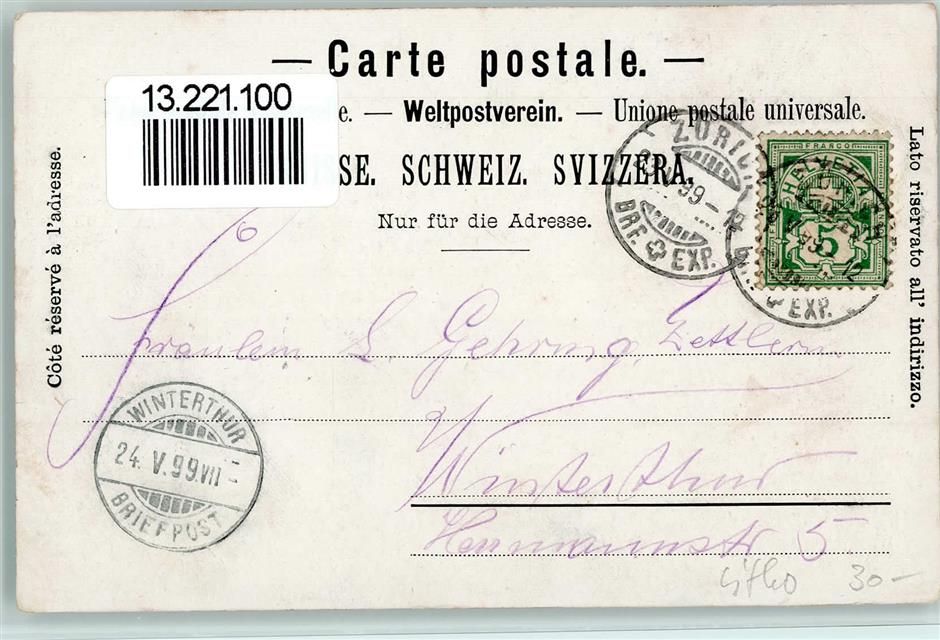 — Carte postale. —
13.221.100
e. — Weltpostverein. — Unione postale universale.
SE. SCHWEIZ. SVIZZERA.
Nur für die Adresse.
Côté réservé à l'adresse.
Lato riservato all' indirizzo.
ZÜRICH
V.99-12
BRF. EXP.
FRANCO
HELVETIA
5
EXP.
Fräulein L. Gehring,
Winterthur
Hermannstr 5
WINTERTHUR
24. V. 99. VII -
BRIEFPOST
Litho 30-